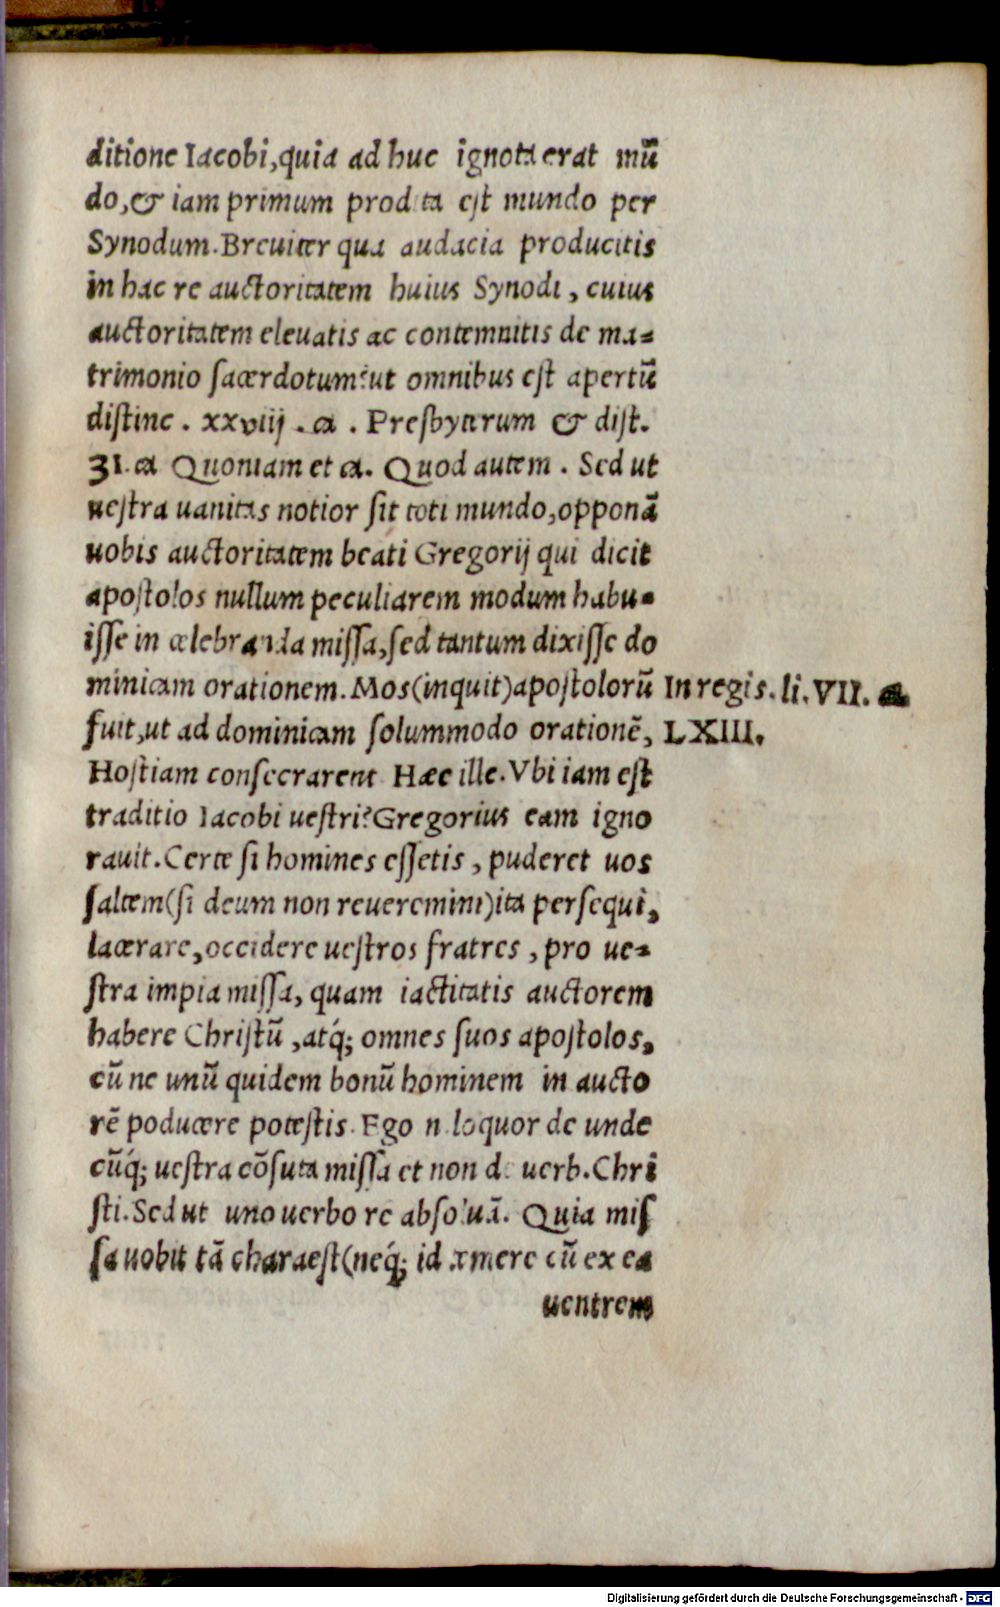 ditione Iacobi,quia ad huc ignota erat mū
do,& iam primum prodita est mundo per
Synodum.Breuiter qua audacia producitis
in hac re auctoritatem huius Synodi, cuius
auctoritatem eleuatis ac contemnitis de ma-
trimonio sacerdotum:ut omnibus est apertū
distinc. xxviij . ca . Presbyterum & dist.
31. ca Quoniam et ca. Quod autem. Sed ut
uestra uanitas notior sit toti mundo,opponā
uobis auctoritatem beati Gregorij qui dicit
apostolos nullum peculiarem modum habu-
isse in celebranda missa,sed tantum dixisse do
minicam orationem.Mos(inquit)apostolorū
In regis.li.VII. ca
fuit,ut ad dominicam solummodo orationē,
LXIII.
Hostiam consecrarent Hæc ille.Vbi iam est
traditio Iacobi uestri?Gregorius eam igno
rauit.Certe si homines essetis, puderet uos
saltem(si deum non reueremini)ita persequi,
lacerare,occidere uestros fratres, pro ue-
stra impia missa, quam iactitatis auctorem
habere Christū ,atq́; omnes suos apostolos,
cū ne unū quidem bonū hominem in aucto
rē poducere potestis. Ego n loquor de unde
cūq́; uestra cōsuta missa et non de uerb.Chri
sti.Sed ut uno uerbo rē absoluā. Quia mis
sa uobit tā charaest(neq́; id xmere cū ex ea
uentrem
Digitalisierung gefördert durch die Deutsche Forschungsgemeinschaft - DFG